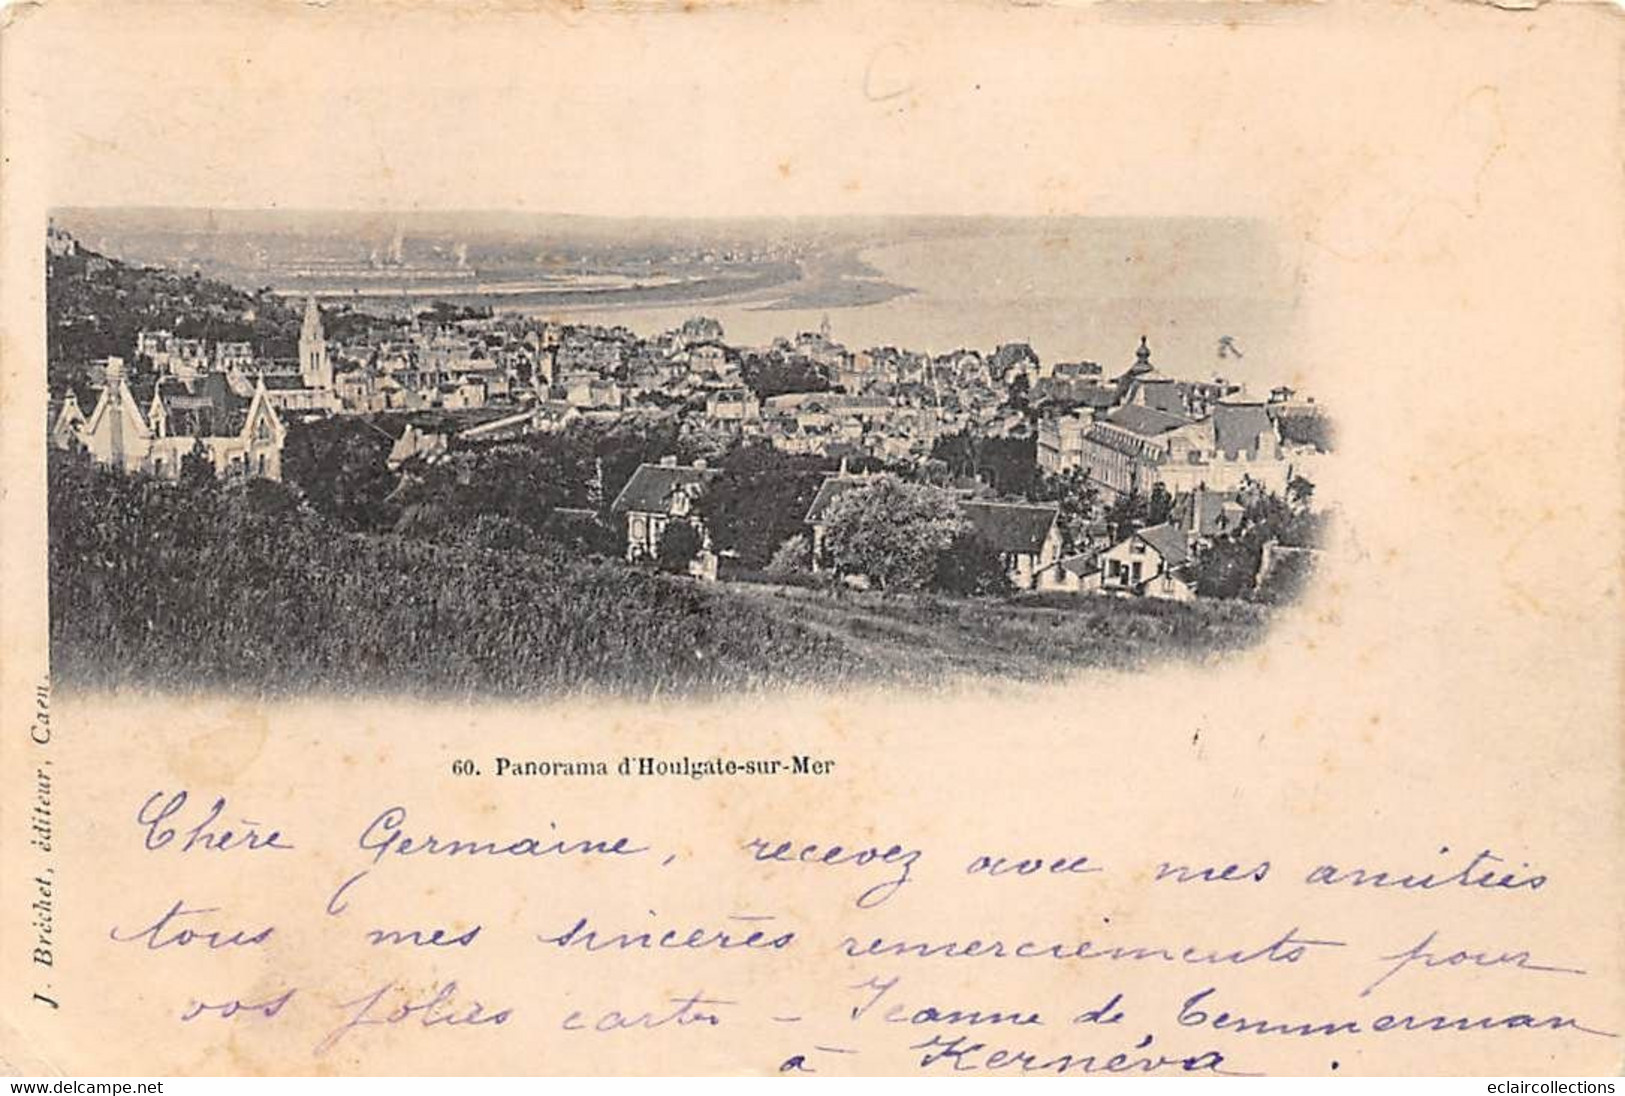 60. Panorama d'Houlgate-sur-Mer
J. Bréchet, éditeur, Caen.
Chère Germaine, recevez avec mes amitiés
tous mes sincères remerciements pour
vos jolies cartes – Jeanne de Temmerman
à Kernéva.
www.delcampe.net
eclaircollections